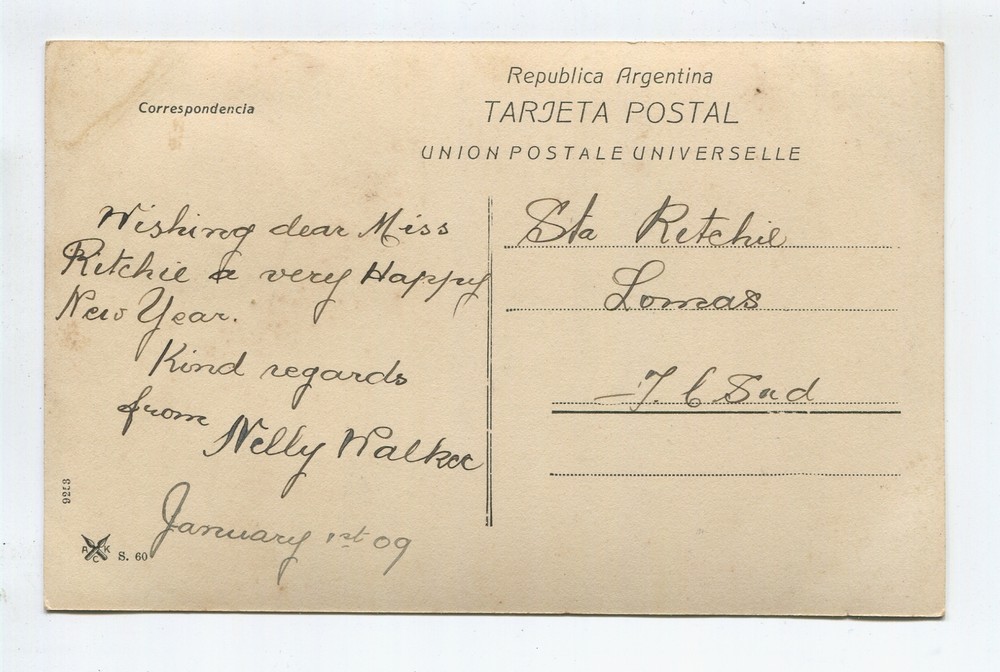 Republica Argentina
TARJETA POSTAL
UNION POSTALE UNIVERSELLE
Correspondencia
Wishing dear Miss
Ritchie a very Happy
New Year.
Kind regards
from
Nelly Walker
January 1st 09
Sta Ritchie
Lomas
F C Sud
9253
A C K
S. 60